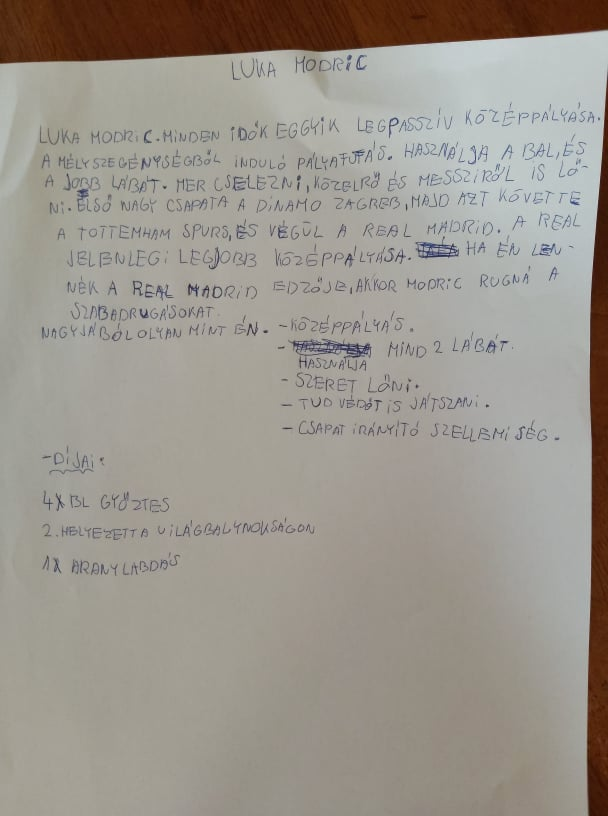 LUKA MODRIC
LUKA MODRIC. MINDEN IDŐK EGGYIK LEGPASSZÍV KÖZÉPPÁLYÁSA.
A MÉLYSZEGÉNYSÉGBŐL INDULÓ PÁLYAFUTÁS. HASZNÁLJA A BAL, ÉS
A JOBB LÁBÁT. MER CSELEZNI, KÖZELRŐ ÉS MESSZIRŐL IS LŐ-
NI. ELSŐ NAGY CSAPATA A DÍNAMO ZAGREB, MAJD AZT KÖVETTE
A TOTTEMHAM SPURS, ÉS VÉGÜL A REAL MADRID. A REAL
JELENLEGI LEGJOBB KÖZÉPPÁLYÁSA. HA ÉN LEN-
NÉK A REAL MADRID EDZŐJE, AKKOR MODRIC RUGNÁ A
SZABADRUGÁSOKAT.
NAGYJÁBÓL OLYAN MINT ÉN. - KÖZÉPPÁLYÁS.
- MIND 2 LÁBÁT.
HASZNÁLJA
- SZERET LŐNI.
- TUD VÉDŐT IS JÁTSZANI.
- CSAPAT IRÁNYÍTÓ SZELLEMISÉG.
- DÍJAI:
4X BL GYŐZTES
2. HELYEZETT A VILÁGBALYNOKSÁGON
1X ARANYLABDÁS